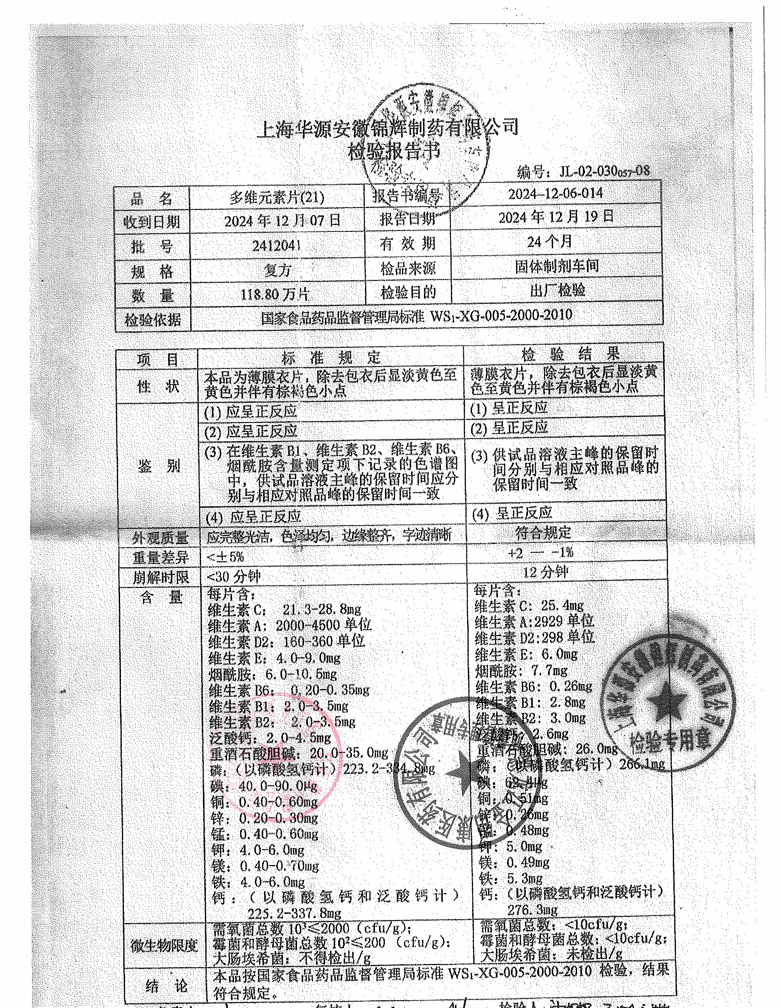 上海华源安徽锦辉制药有限公司
检验报告书
编号：JL-02-030057-08
品 名 多维元素片(21) 报告书编号 2024-12-06-014
收到日期 2024 年 12 月 07 日 报告日期 2024 年 12 月 19 日
批 号 2412041 有 效 期 24 个月
规 格 复方 检品来源 固体制剂车间
数 量 118.80 万片 检验目的 出厂检验
检验依据 国家食品药品监督管理局标准 WS₁-XG-005-2000-2010
项 目 标 准 规 定 检 验 结 果
性 状 本品为薄膜衣片，除去包衣后显淡黄色至 薄膜衣片，除去包衣后显淡黄
黄色并伴有棕褐色小点 色至黄色并伴有棕褐色小点
鉴 别 (1) 应呈正反应 (1) 呈正反应
(2) 应呈正反应 (2) 呈正反应
(3) 在维生素 B1、维生素 B2、维生素 B6、 (3) 供试品溶液主峰的保留时
烟酰胺含量测定项下记录的色谱图 间分别与相应对照品峰的
中，供试品溶液主峰的保留时间应分 保留时间一致
别与相应对照品峰的保留时间一致
(4) 应呈正反应 (4) 呈正反应
外观质量 应完整光洁，色泽均匀，边缘整齐，字迹清晰 符合规定
重量差异 <±5% +2 — -1%
崩解时限 <30 分钟 12 分钟
含 量 每片含： 每片含：
维生素 C： 21.3-28.8mg 维生素 C： 25.4mg
维生素 A：2000-4500 单位 维生素 A:2929 单位
维生素 D2：160-360 单位 维生素 D2:298 单位
维生素 E：4.0-9.0mg 维生素 E： 6.0mg
烟酰胺：6.0-10.5mg 烟酰胺：7.7mg
维生素 B6： 0.20-0.35mg 维生素 B6：0.26mg
维生素 B1：2.0-3.5mg 维生素 B1：2.8mg
维生素 B2： 2.0-3.5mg 维生素 B2：3.0mg
泛酸钙：2.0-4.5mg 2.6mg
重酒石酸胆碱：20.0-35.0mg 重酒石酸胆碱：26.0mg
磷：（以磷酸氢钙计）223.2- 磷：（以磷酸氢钙计）266.1mg
碘：40.0-90.0μg 碘：
铜：0.40-0.60mg 铜：0.51mg
锌：0.20-0.30mg 锌：0.26mg
锰：0.40-0.60mg 0.48mg
钾：4.0-6.0mg 钾：5.0mg
镁：0.40-0.70mg 镁：0.49mg
铁：4.0-6.0mg 铁：5.3mg
钙：（以磷酸氢钙和泛酸钙计） 钙：（以磷酸氢钙和泛酸钙计）
225.2-337.8mg 276.3mg
微生物限度 需氧菌总数 10³≤2000（cfu/g）； 需氧菌总数：<10cfu/g；
霉菌和酵母菌总数 10²≤200（cfu/g）； 霉菌和酵母菌总数：<10cfu/g；
大肠埃希菌：不得检出/g 大肠埃希菌：未检出/g
结 论 本品按国家食品药品监督管理局标准 WS₁-XG-005-2000-2010 检验，结果
符合规定。
检验专用章